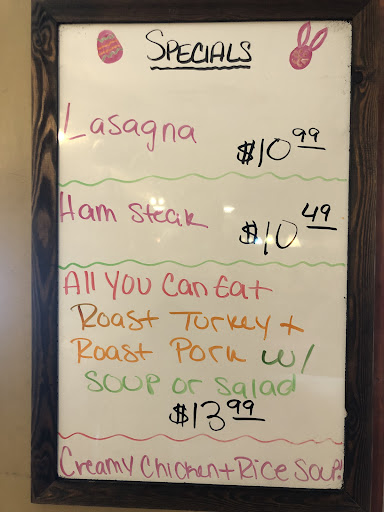 SPECIALS
Lasagna
$10.99
Ham Steak
$10.49
All You Can Eat
Roast Turkey +
Roast Pork w/
SOUP or Salad
$13.99
Creamy Chicken + Rice Soup!